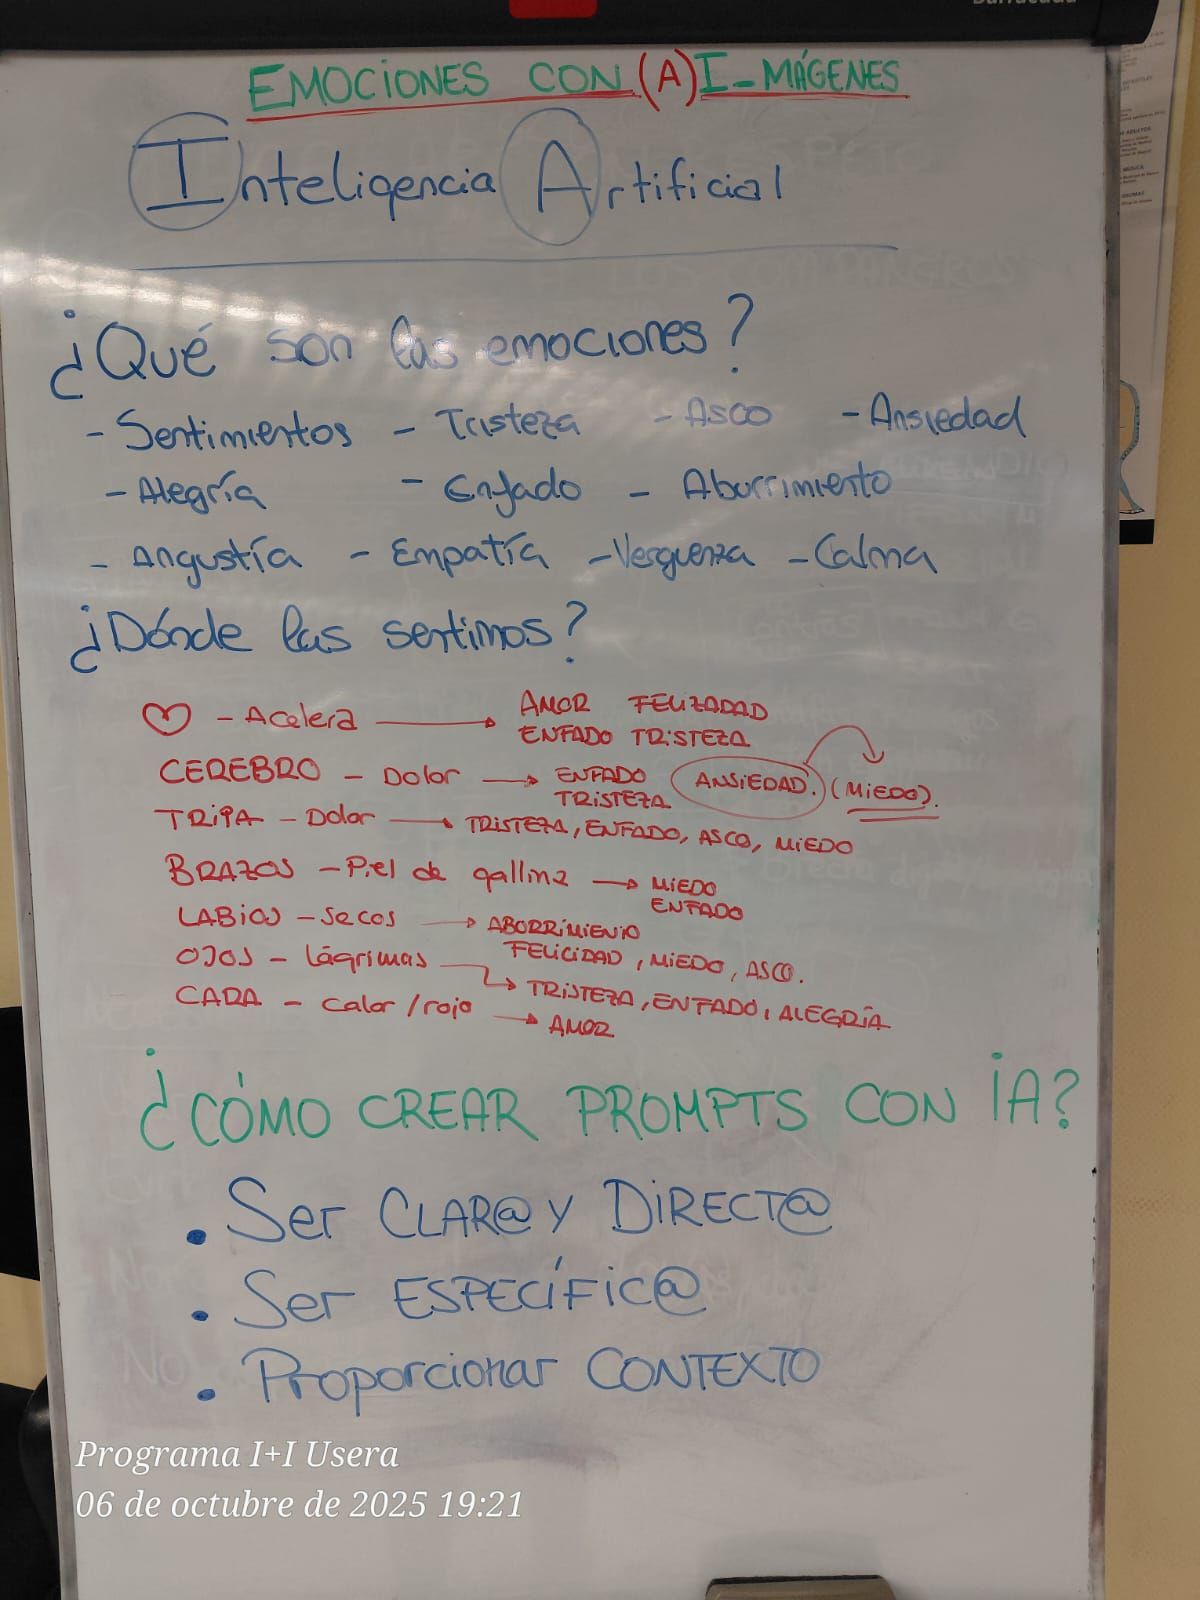 EMOCIONES CON (A)I-MÁGENES
Inteligencia Artificial
¿Qué son las emociones?
- Sentimientos - Tristeza - Asco - Ansiedad
- Alegría - Enfado - Aburrimiento
- Angustía - Empatía - Verguenza - Calma
¿Dónde las sentimos?
♡ - Acelera → AMOR FELIZADAD
ENFADO TRISTEZA
CEREBRO - Dolor → ENFADO ANSIEDAD. (MIEDO).
TRISTEZA
TRIPA - Dolor → TRISTEZA, ENFADO, ASCO, MIEDO
BRAZOS - Piel de gallina → MIEDO
ENFADO
LABIOS - Secos → ABORRIMIENTO
FELICIDAD, MIEDO, ASCO.
OJOS - Lágrimas → TRISTEZA, ENFADO, ALEGRÍA
CARA - Calor / rojo → AMOR
¿CÓMO CREAR PROMPTS CON IA?
• Ser CLAR@ Y DIRECT@
• Ser ESPECÍFIC@
• Proporcionar CONTEXTO
Programa I+I Usera
06 de octubre de 2025 19:21